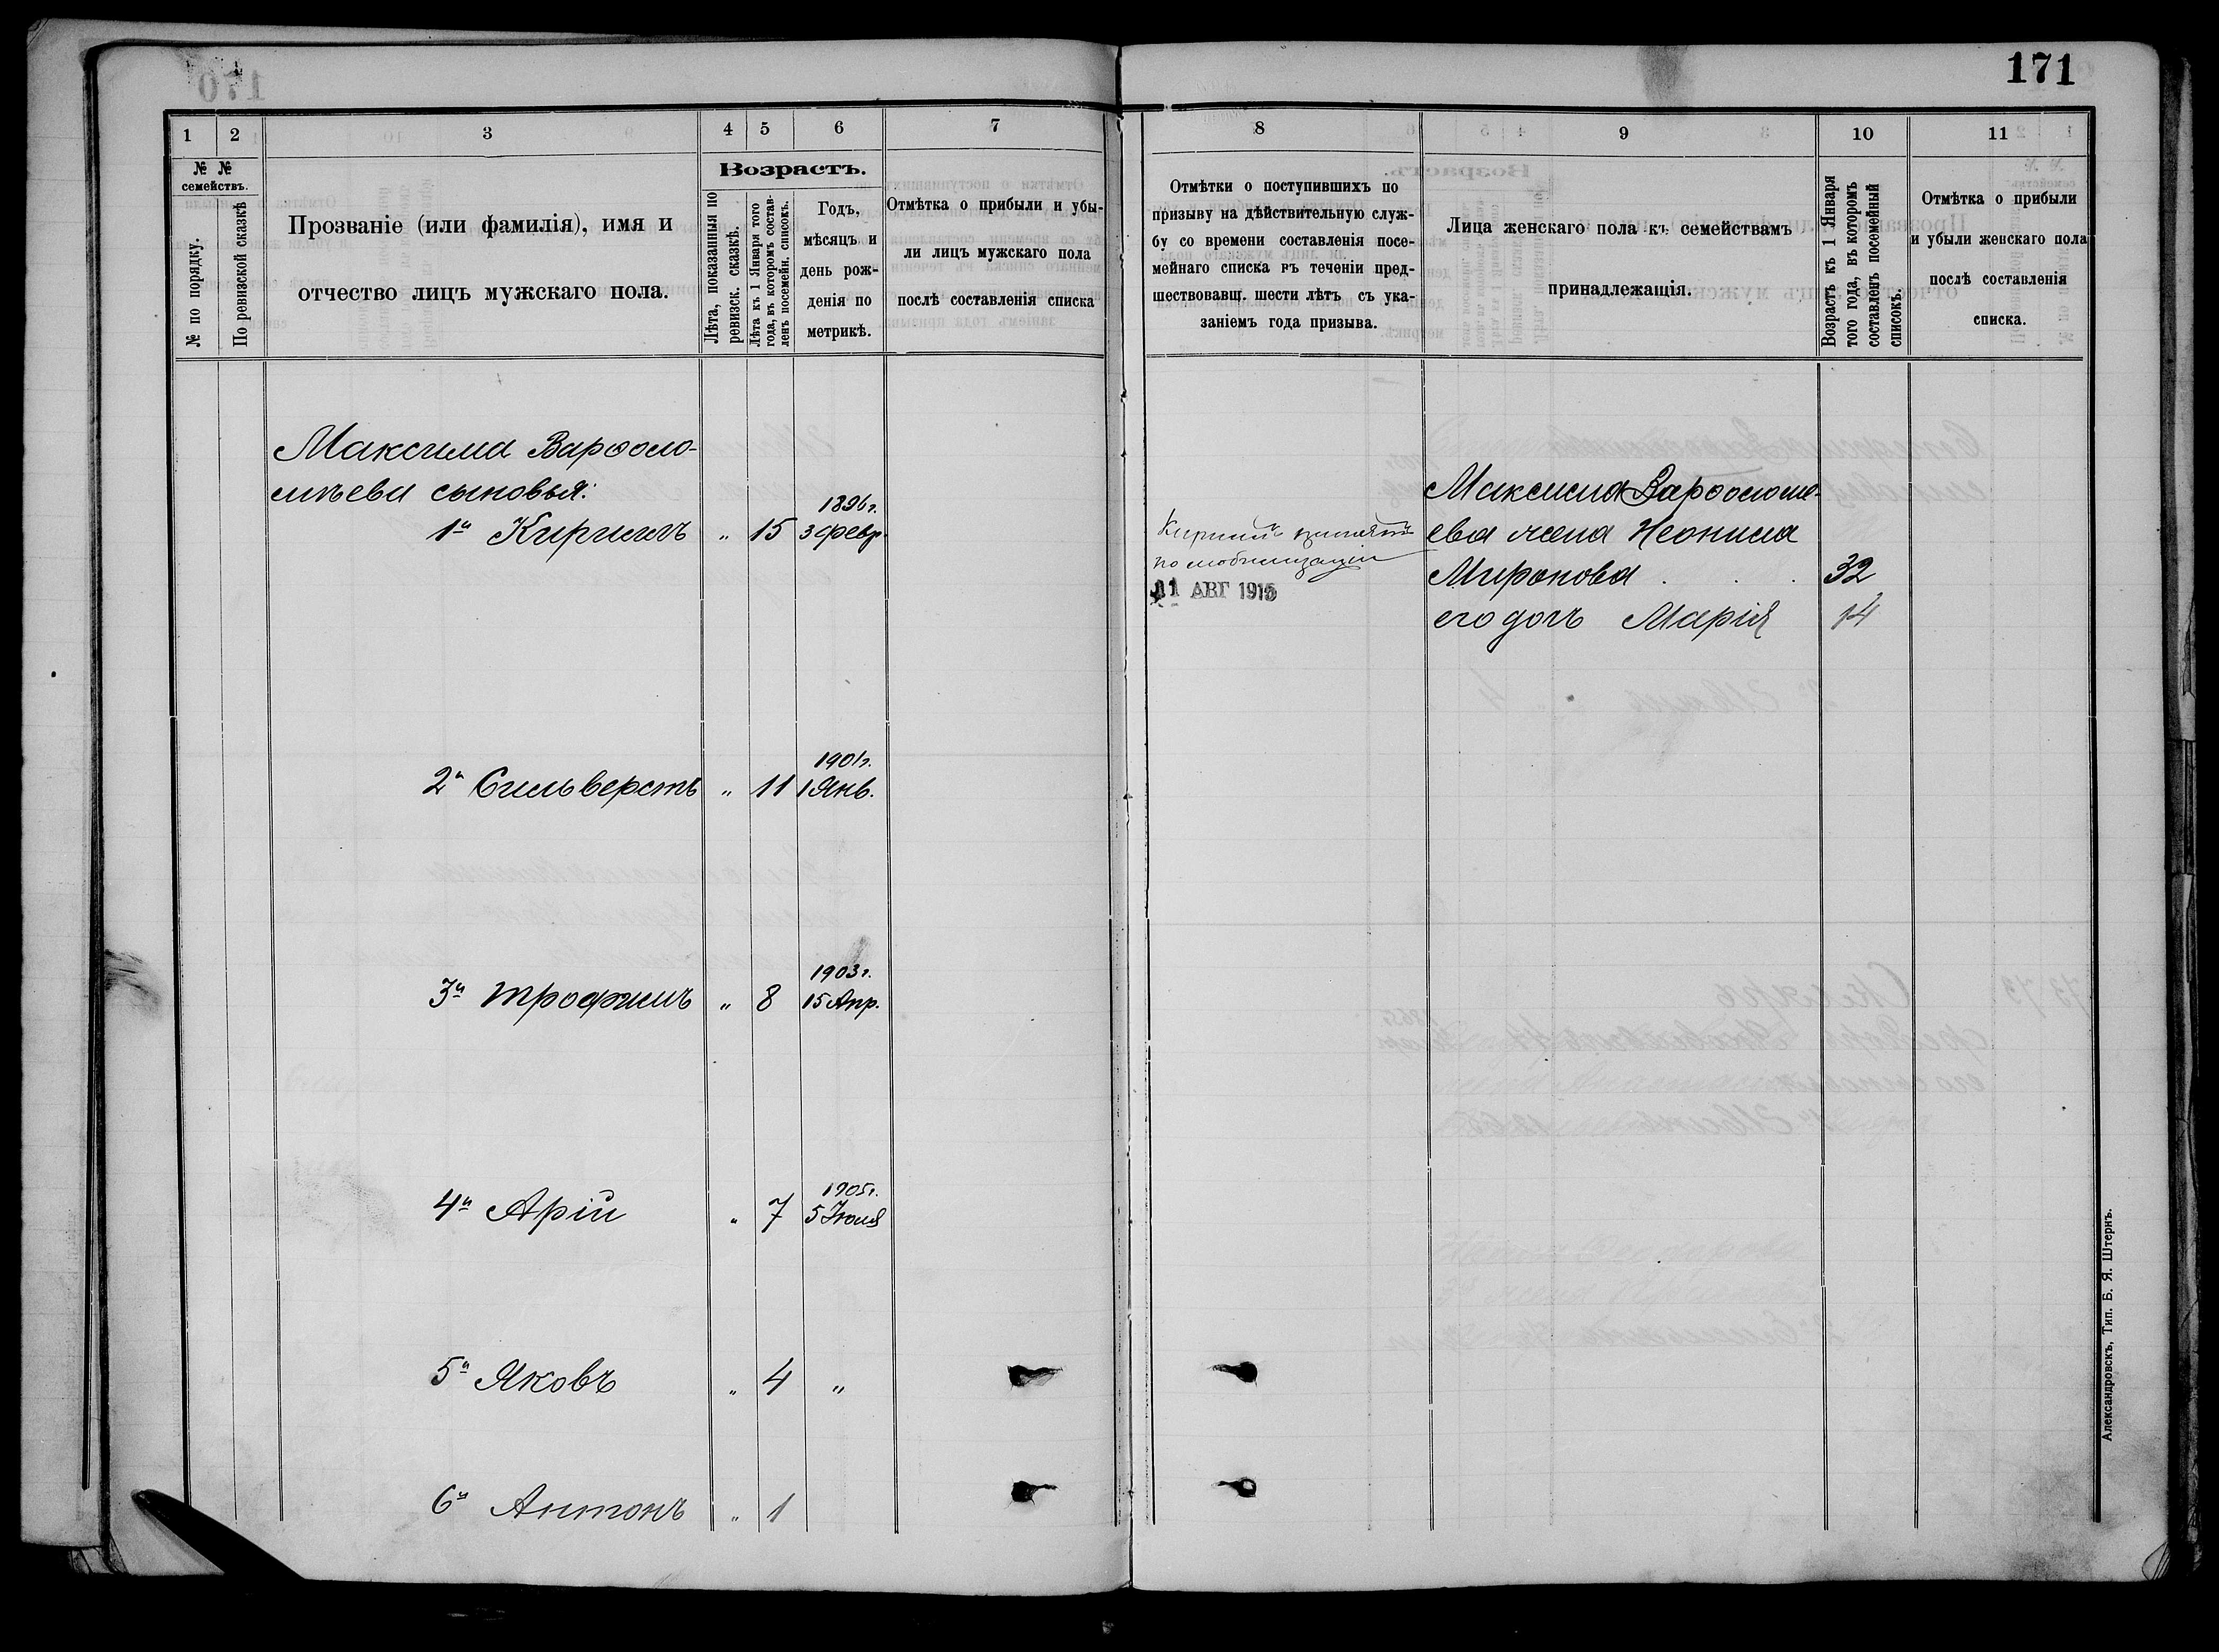 171
1 2 3 4 5 6 7
№ №
семействъ.
№ по порядку.
По ревизской сказкѣ
Прозваніе (или фамилія), имя и
отчество лицъ мужскаго пола.
Возрастъ.
Лѣта, показанныя по
ревизск. сказкѣ.
Лѣта къ 1 Января того
года, въ которомъ состав-
ленъ посемейн. списокъ.
Годъ,
мѣсяцъ и
день рож-
денія по
метрикѣ.
Отмѣтка о прибыли и убы-
ли лицъ мужскаго пола
послѣ составленія списка
Максима Варѳоло-
мѣева сыновья:
1й Кириллъ " 15 1896 г. 3 февр.
2й Сильверстъ " 11 1901 г. 1 Янв.
3й Трофимъ " 8 1903 г. 15 Апр.
4й Арій " 7 1905 г. 5 Іюля
5й Яковъ " 4 "
6й Антонъ " 1
8 9 10 11
Отмѣтки о поступившихъ по
призыву на дѣйствительную служ-
бу со времени составленія посе-
мейнаго списка въ теченіи пред-
шествовавщ. шести лѣтъ съ ука-
заніемъ года призыва.
Лица женскаго пола къ семействамъ
принадлежащія.
Возрастъ къ 1 Января
того года, въ которомъ
составленъ посемейный
списокъ.
Отмѣтка о прибыли
и убыли женскаго пола
послѣ составленія
списка.
Кириллъ принятъ
по мобилизаціи
11 АВГ 1915
Максима Варѳоломе-
ева жена Неонила
Миронова . . . 32
его дочь Марія 14
Александровскъ, Тип. Б. Я. Штернъ.